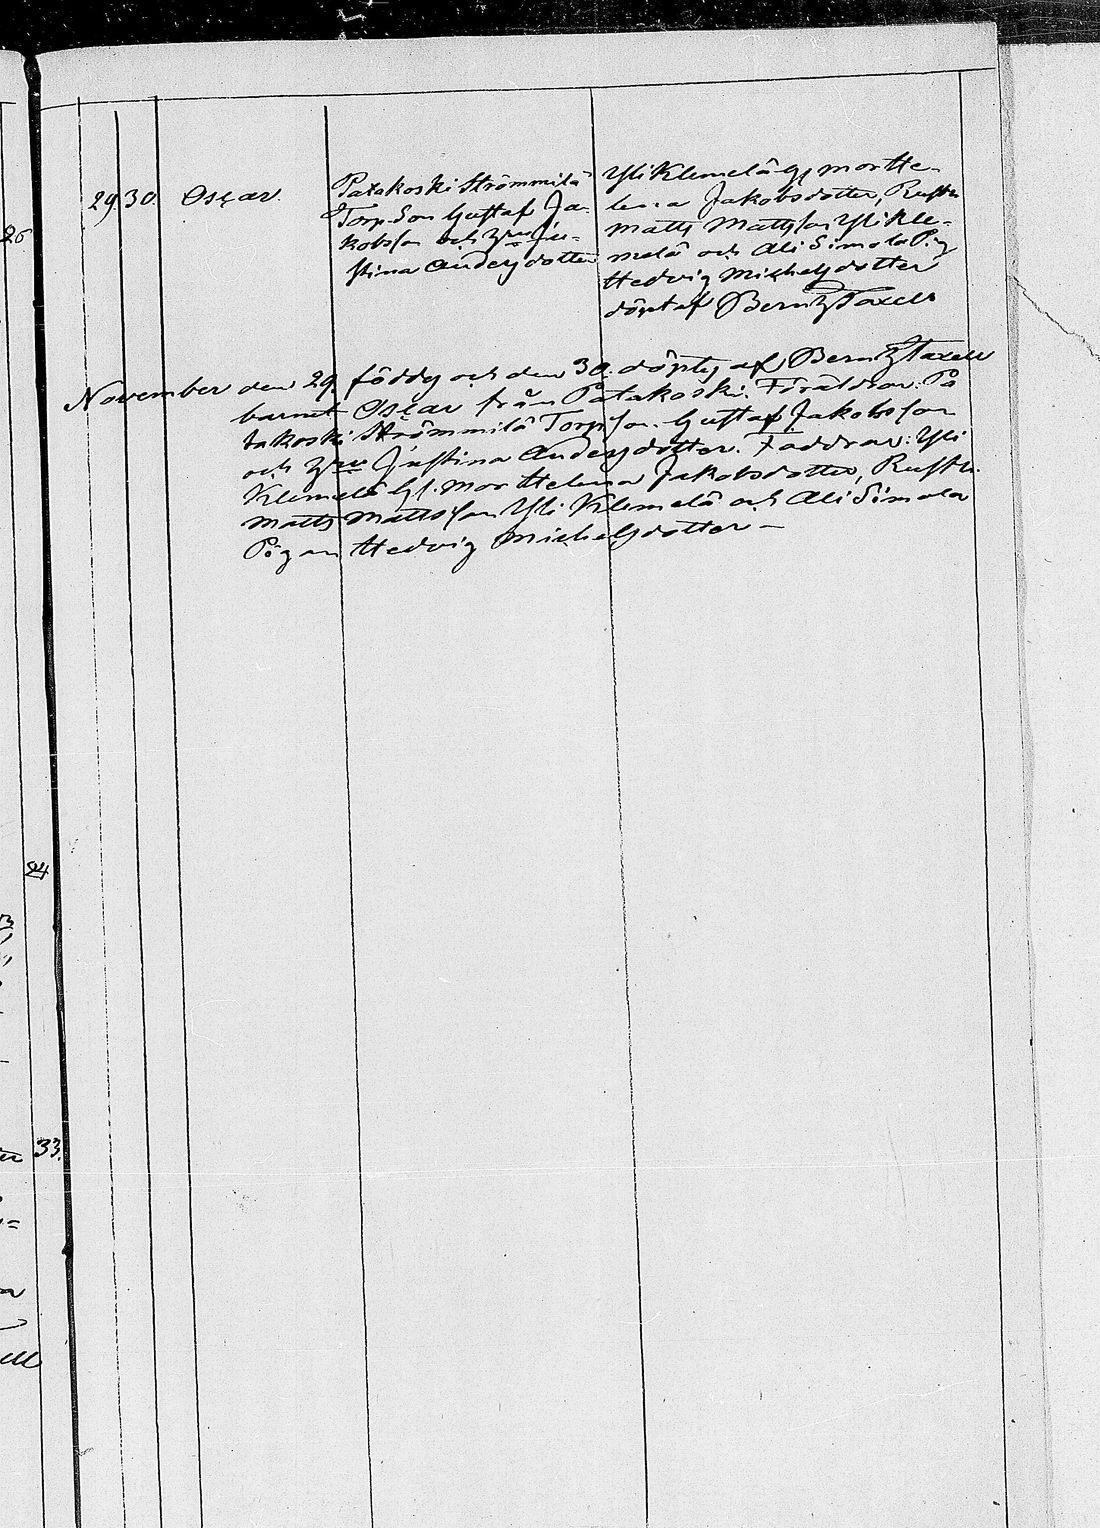 29. 30. Oscar.
Patakoski Strömmilä
Torp. Son Gustaf Ja-
kobsson och Hru Ju-
stina Andersdotter
Yli Klemelä Gl mor He-
lena Jakobsdotter, Rusth.
Matts Mattsson Yli Kle-
melä och Ali Simola Pig.
Hedvig Michelsdotter
döpt af Berntz Taxell
November den 29. föddes och den 30. döptes af Berntz Taxell
barnet Oscar från Patakoski. Föräldrar: Pa
takoski Strömmilä Torp. son. Gustaf Jakobsson
och Hru Justina Andersdotter. Faddrar: Yli
Klemelä Gl. mor Helena Jakobsdotter, Rusth.
Matts Mattsson Yli Klemelä och Ali Simola
Pigan Hedvig Michelsdotter —
26
24
33.